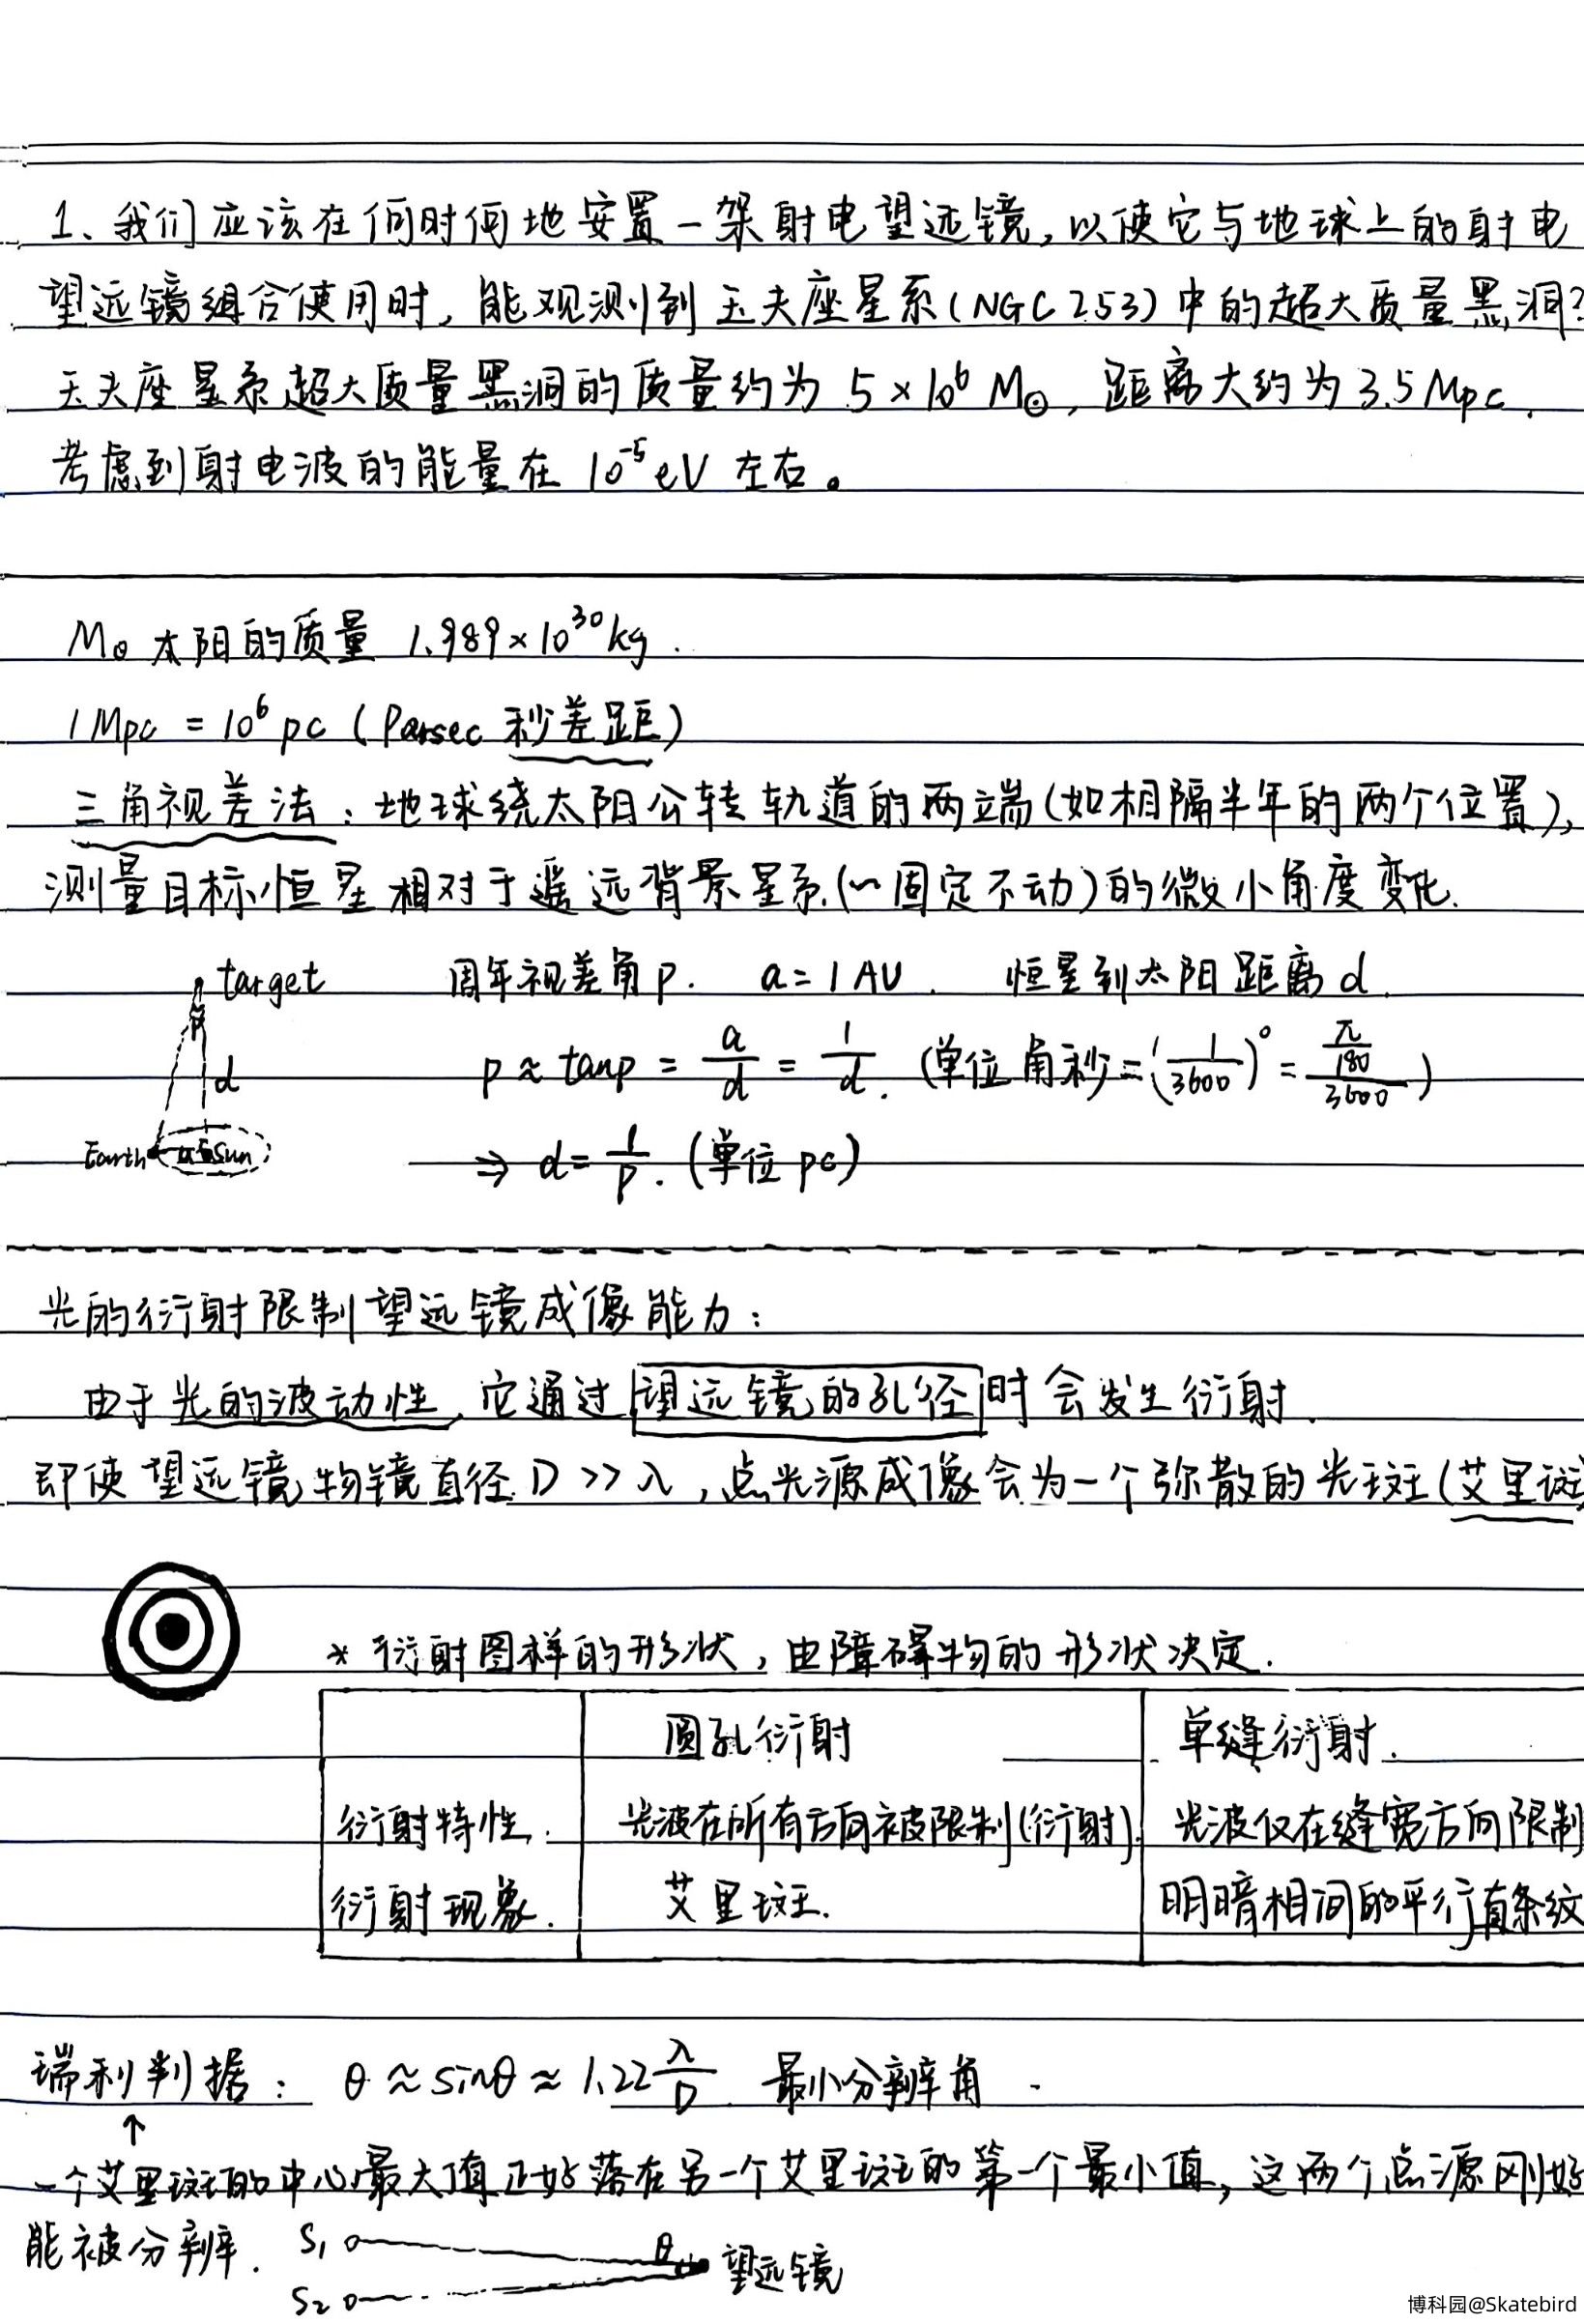 1、我们应该在何时何地安置一架射电望远镜，以使它与地球上的射电
望远镜组合使用时，能观测到玉夫座星系(NGC 253)中的超大质量黑洞?
玉夫座星系超大质量黑洞的质量约为 5×10⁶ M⊙，距离大约为 3.5 Mpc.
考虑到射电波的能量在 10⁻⁵ eV 左右。
M⊙ 太阳的质量 1.989×10³⁰ kg.
1 Mpc = 10⁶ pc (Parsec 秒差距)
三角视差法：地球绕太阳公转轨道的两端(如相隔半年的两个位置),
测量目标恒星相对于遥远背景星系(~固定不动)的微小角度变化.
target 周年视差角 p. a = 1 AU. 恒星到太阳距离 d.
p
d p ≈ tanp = a/d = 1/d. (单位 角秒 = (1/3600)° = (π/180)/3600)
Earth a Sun ⇒ d = 1/p. (单位 pc)
光的衍射限制望远镜成像能力：
由于光的波动性，它通过望远镜的孔径时会发生衍射.
即使望远镜物镜直径 D >> λ，点光源成像会为一个弥散的光斑(艾里斑)
* 衍射图样的形状，由障碍物的形状决定.
圆孔衍射 单缝衍射.
衍射特性. 光波在所有方向被限制(衍射). 光波仅在缝宽方向限制
衍射现象. 艾里斑. 明暗相间的平行直条纹
瑞利判据： θ ≈ sinθ ≈ 1.22 λ/D. 最小分辨角.
↑
一个艾里斑的中心最大值正好落在另一个艾里斑的第一个最小值，这两个点源刚好
能被分辨. S₁ θ 望远镜
S₂
博科园@Skatebird